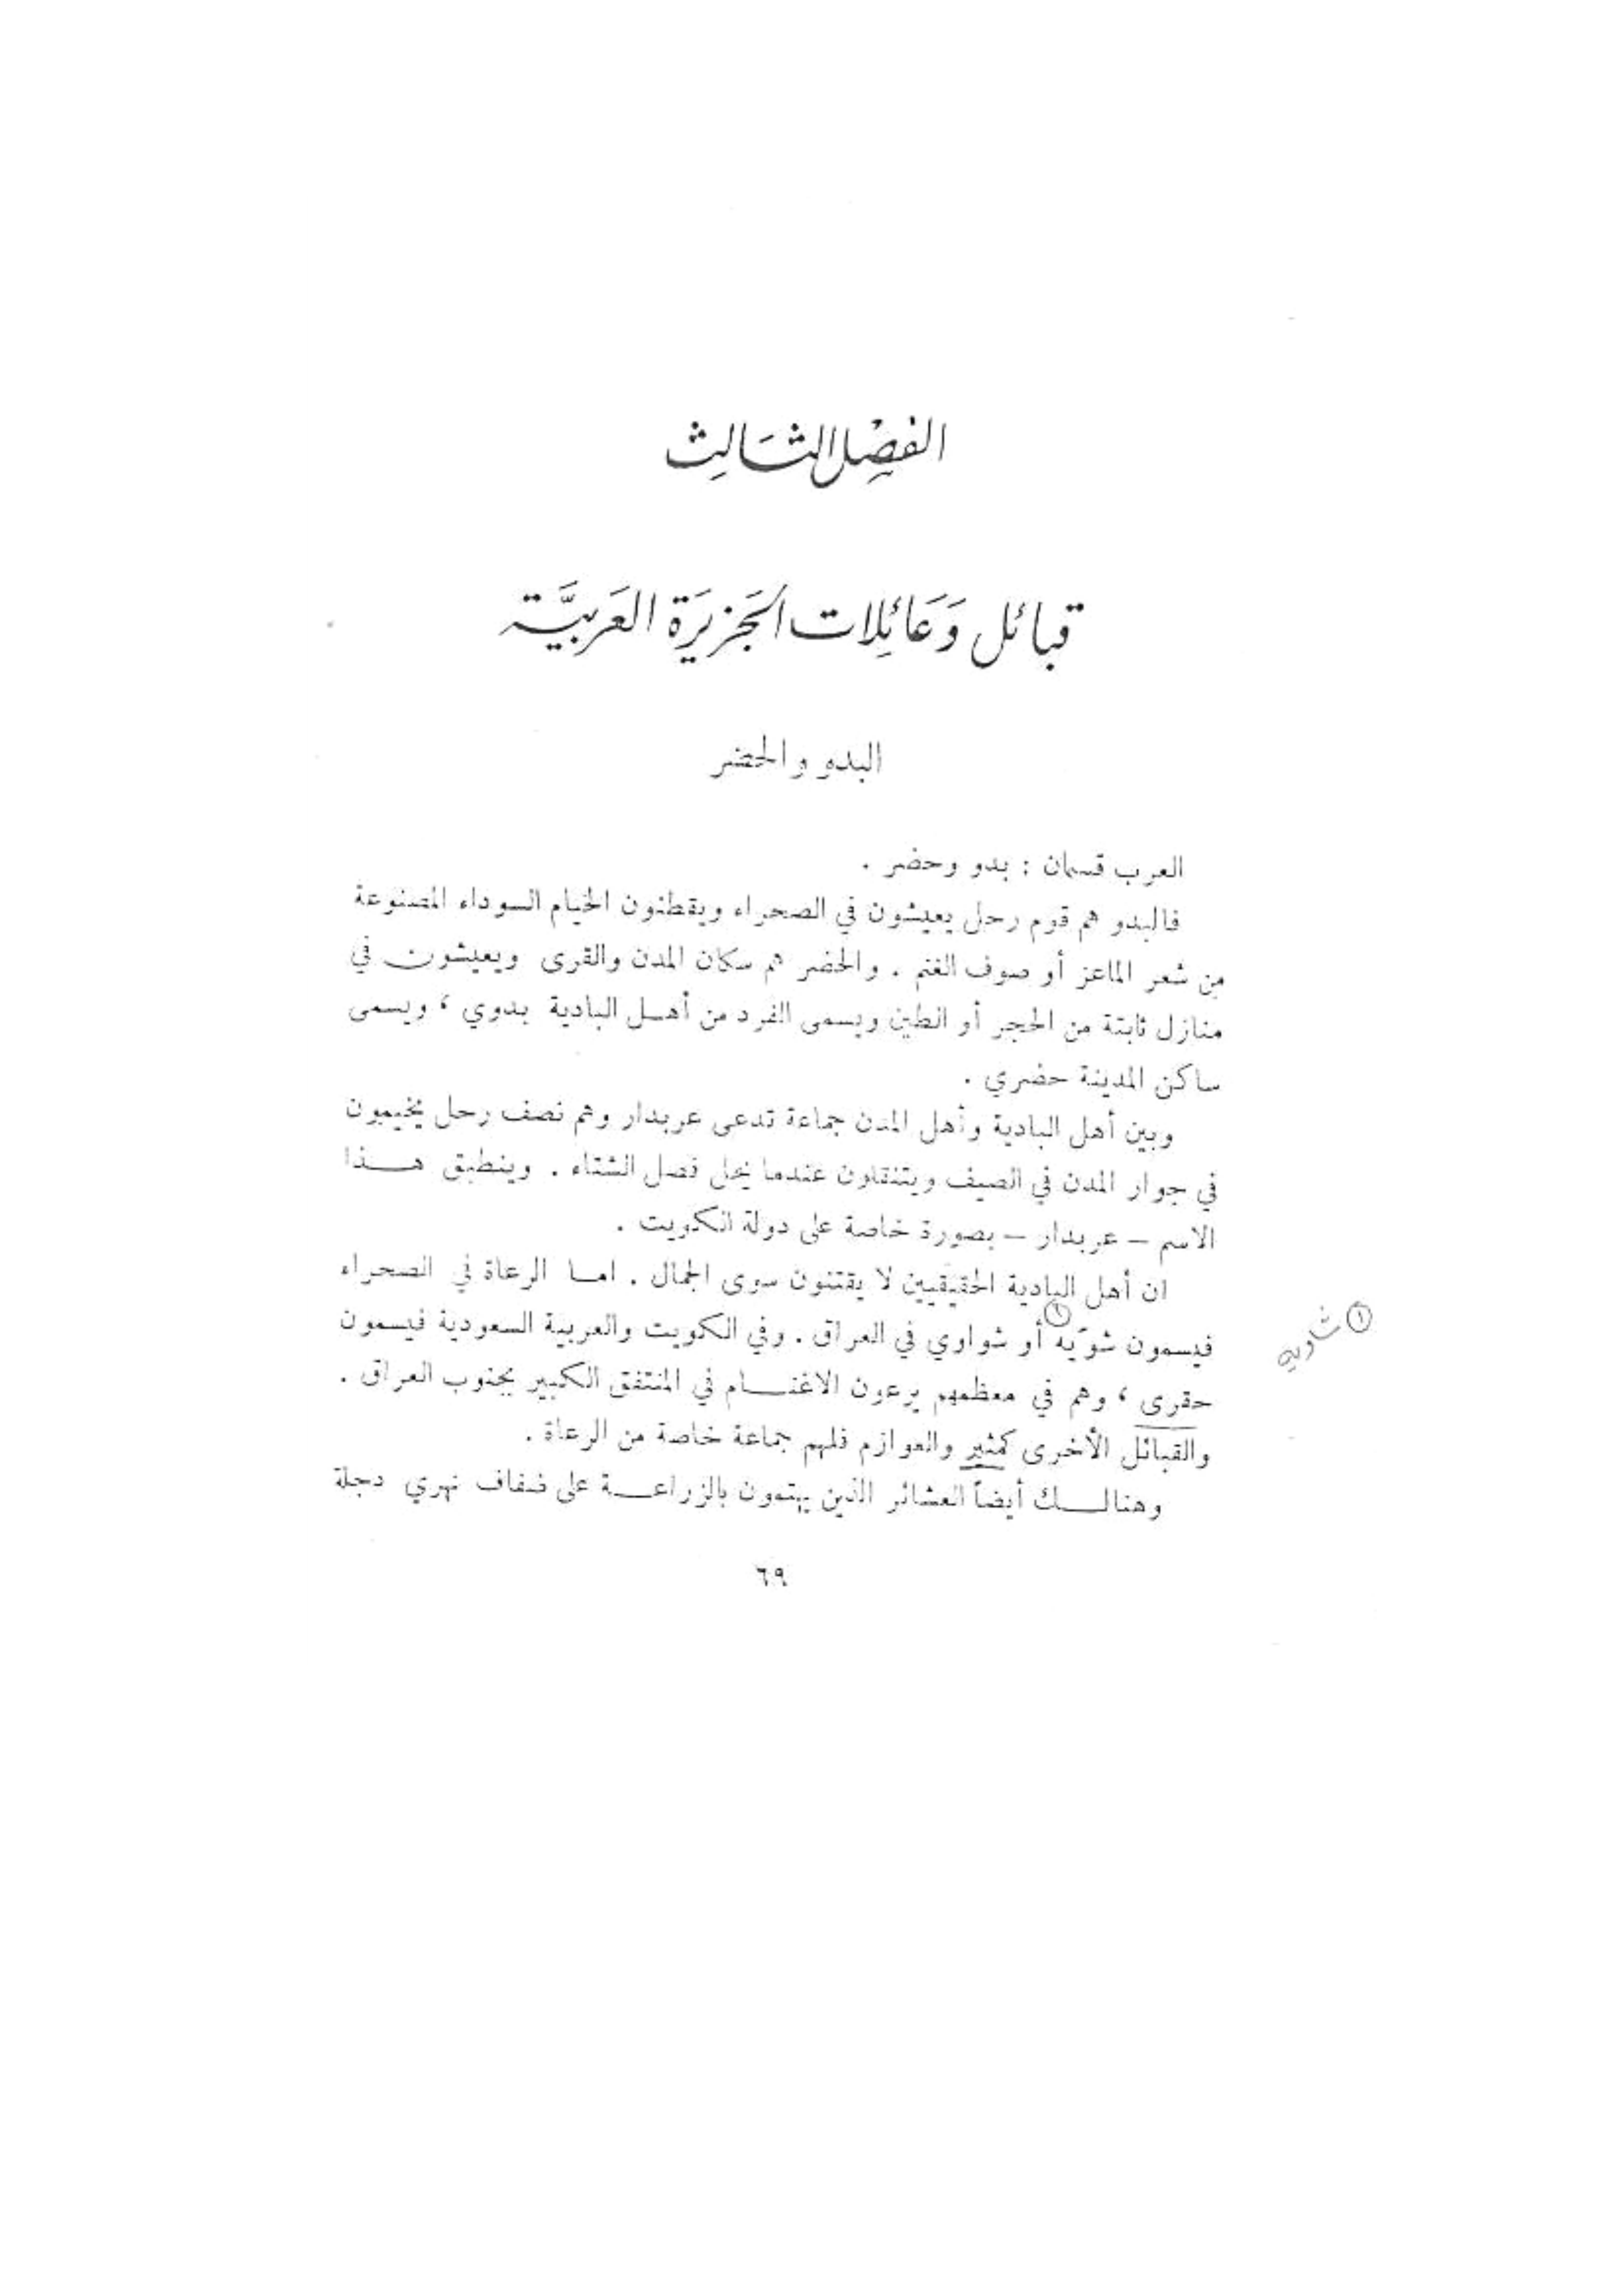 الفصل الثالث
قبائل وَعَائِلات الجَزيرَة العَربيَّة
البدو والحضر
العرب قسمان : بدو وحضر .
فالبدو هم قوم رحل يعيشون في الصحراء ويقطنون الخيام السوداء المصنوعة
من شعر الماعز أو صوف الغنم . والحضر هم سكان المدن والقرى ويعيشون في
منازل ثابتة من الحجر أو الطين ويسمى الفرد من أهل البادية بدوي ، ويسمى
ساكن المدينة حضري .
وبين أهل البادية وأهل المدن جماعة تدعى عربدار وهم نصف رحل يخيمون
في جوار المدن في الصيف ويتنقلون عندما يحل فصل الشتاء . وينطبق هذا
الاسم – عربدار – بصورة خاصة على دولة الكويت .
ان أهل البادية الحقيقيين لا يقتنون سوى الجمال . اما الرعاة في الصحراء
فيسمون شوّيه (١) أو شواوي في العراق . وفي الكويت والعربية السعودية فيسمون
حقرى ، وهم في معظمهم يرعون الاغنام في المنتفق الكبير بجنوب العراق .
والقبائل الأخرى كمثير والعوازم فلهم جماعة خاصة من الرعاة .
وهنالك أيضاً العشائر الذين يهتمون بالزراعة على ضفاف نهري دجلة
(١) شاويه
٦٩